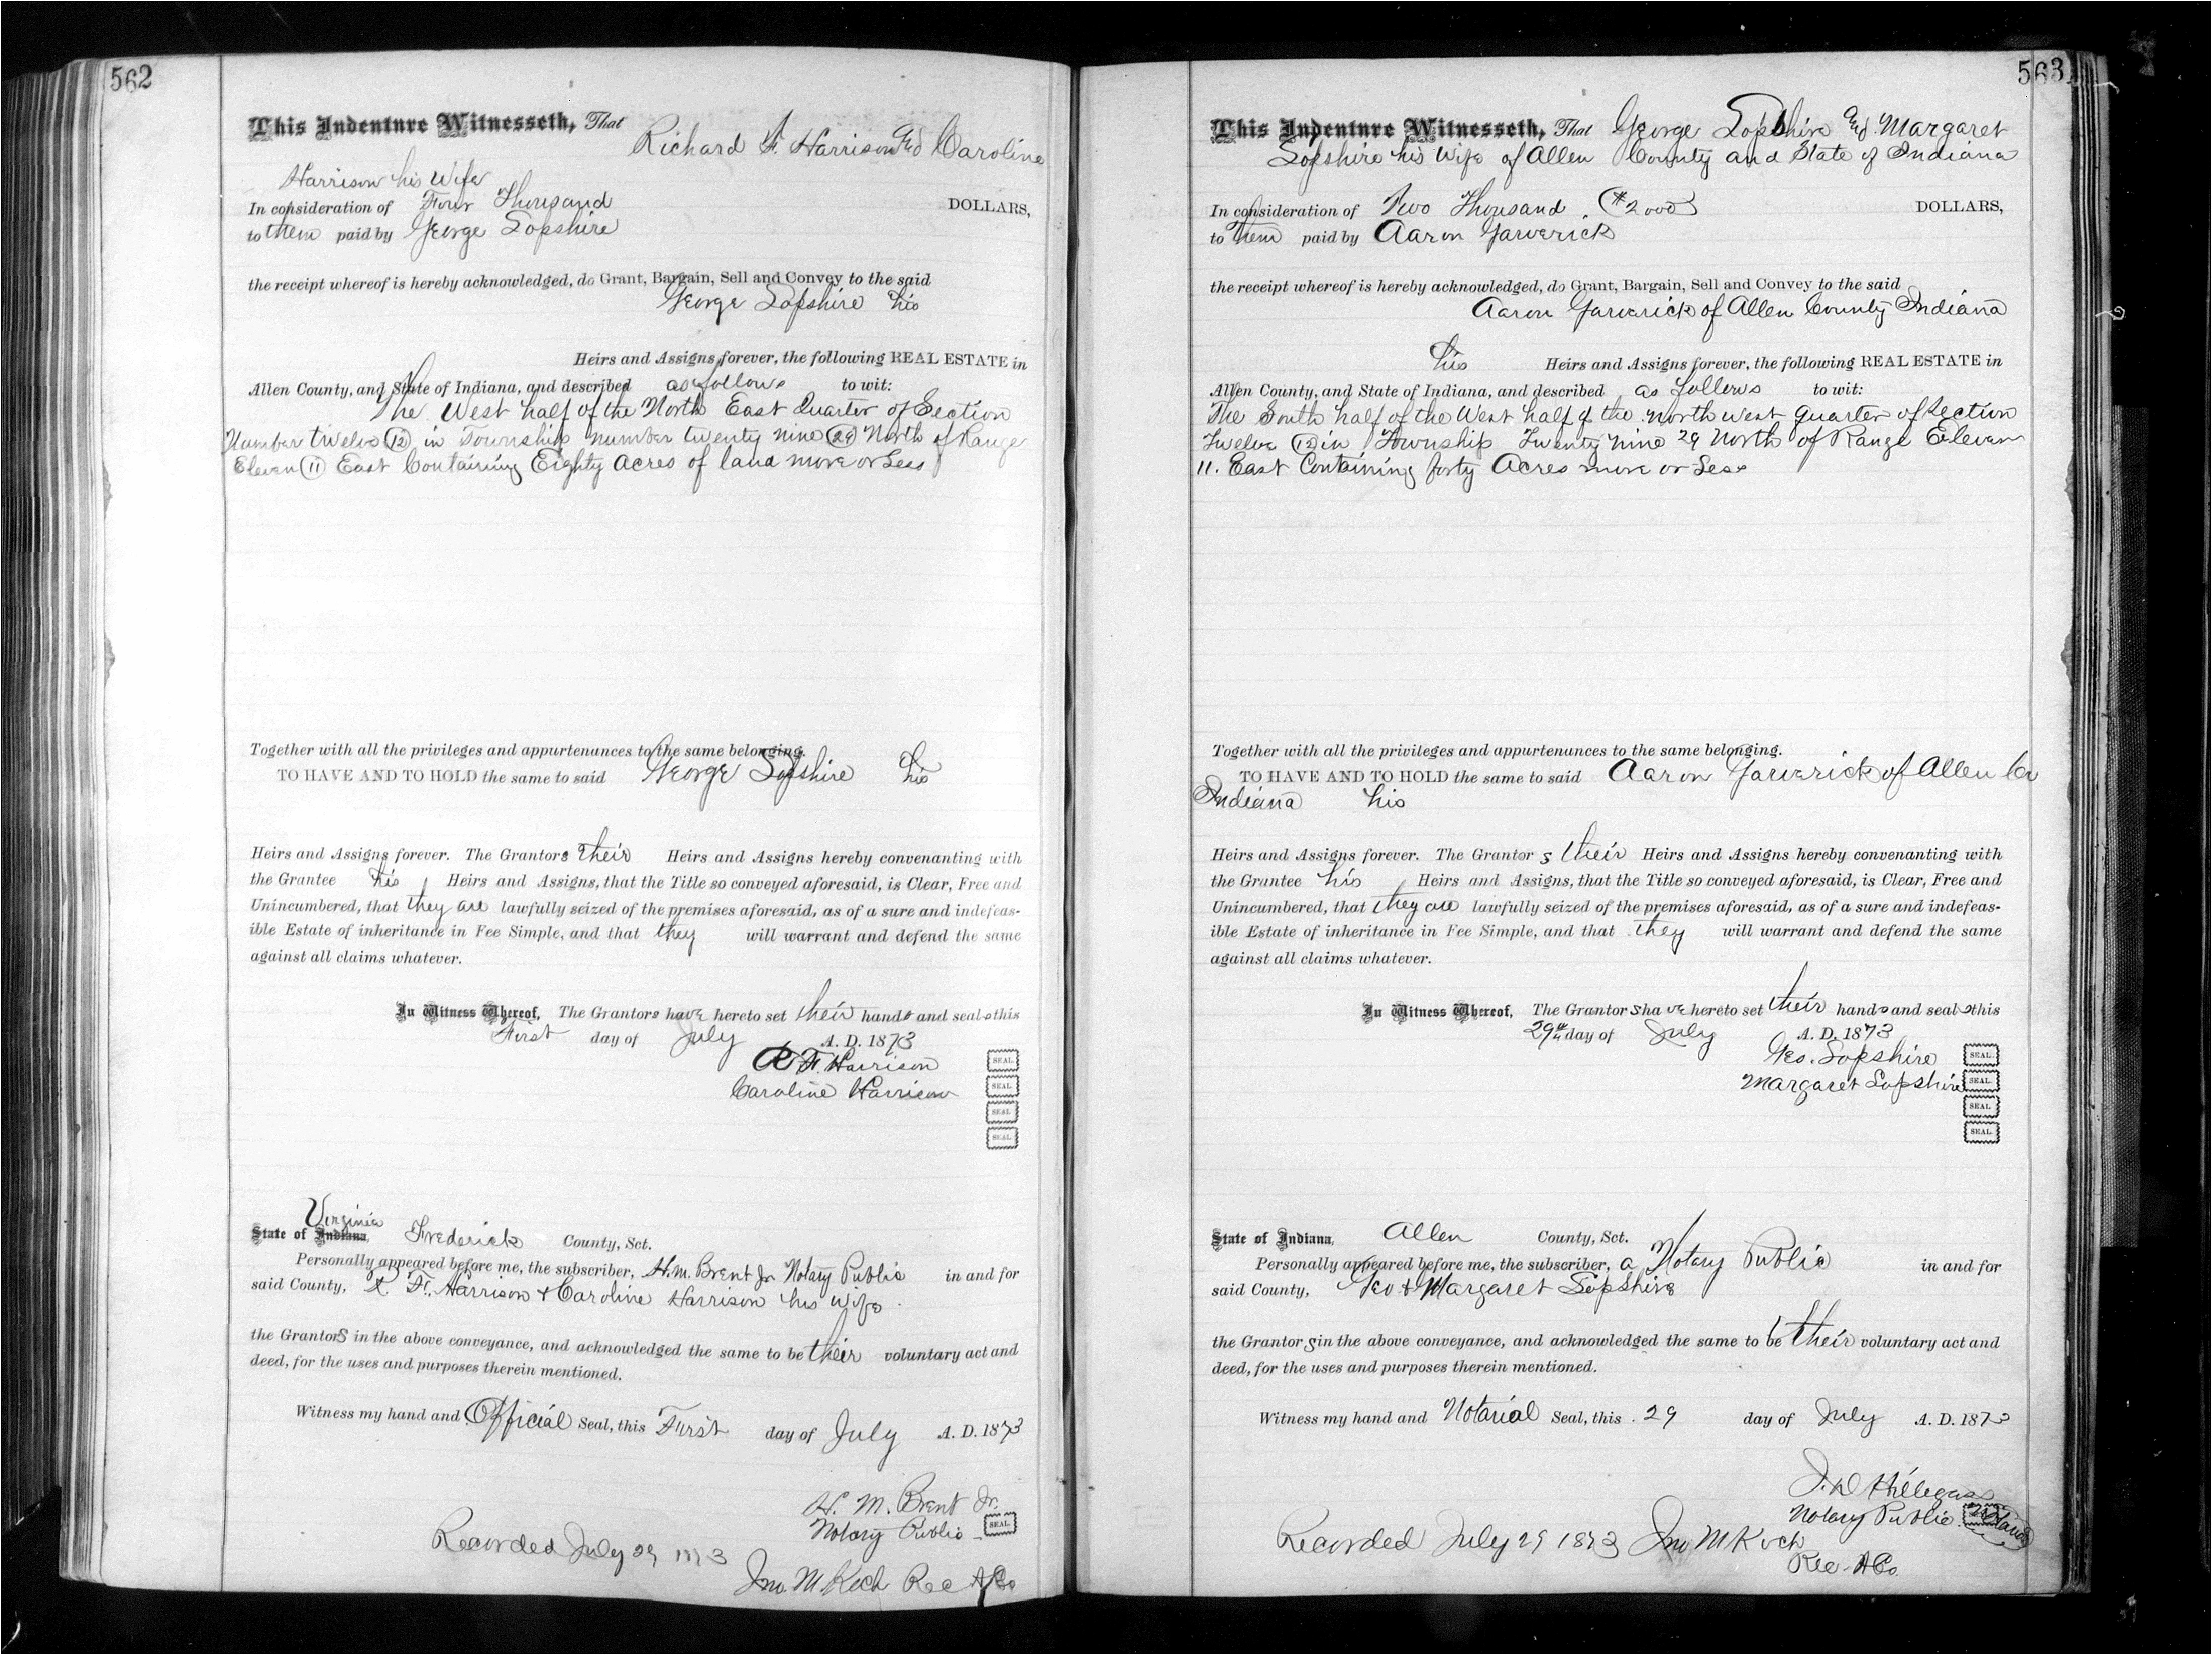 562
This Indenture Witnesseth, That Richard F. Harrison and Caroline
Harrison his Wife
In consideration of Four Thousand DOLLARS,
to them paid by George Lopshire
the receipt whereof is hereby acknowledged, do Grant, Bargain, Sell and Convey to the said
George Lopshire his
Heirs and Assigns forever, the following REAL ESTATE in
Allen County, and State of Indiana, and described as follows to wit:
The West half of the North East Quarter of Section
Number twelve (12) in Township number twenty nine (29) North of Range
Eleven (11) East Containing Eighty Acres of land more or Less
Together with all the privileges and appurtenances to the same belonging.
TO HAVE AND TO HOLD the same to said George Lopshire his
Heirs and Assigns forever. The Grantors their Heirs and Assigns hereby convenanting with
the Grantee his Heirs and Assigns, that the Title so conveyed aforesaid, is Clear, Free and
Unincumbered, that they are lawfully seized of the premises aforesaid, as of a sure and indefeas-
ible Estate of inheritance in Fee Simple, and that they will warrant and defend the same
against all claims whatever.
In Witness Whereof, The Grantors have hereto set their hands and seals this
First day of July A. D. 1873
R. F. Harrison SEAL.
Caroline Harrison SEAL.
SEAL.
SEAL.
Virginia
State of Indiana, Frederick County, Sct.
Personally appeared before me, the subscriber, H. M. Brent Jr Notary Public in and for
said County, R. F. Harrison & Caroline Harrison his wife
the Grantors in the above conveyance, and acknowledged the same to be their voluntary act and
deed, for the uses and purposes therein mentioned.
Witness my hand and Official Seal, this First day of July A. D. 1873
H. M. Brent Jr.
Notary Public SEAL
Recorded July 29 1873
Jno. M. Koch Rec A Co
563
This Indenture Witnesseth, That George Lopshire and Margaret
Lopshire his Wife of Allen County and State of Indiana
In consideration of Two Thousand ($2000) DOLLARS,
to Them paid by Aaron Garverick
the receipt whereof is hereby acknowledged, do Grant, Bargain, Sell and Convey to the said
Aaron Garverick of Allen County Indiana
his Heirs and Assigns forever, the following REAL ESTATE in
Allen County, and State of Indiana, and described as follows to wit:
The South half of the West half of the North west quarter of Section
Twelve (12) in Township Twenty Nine 29 North of Range Eleven
11. East Containing forty Acres more or Less
Together with all the privileges and appurtenances to the same belonging.
TO HAVE AND TO HOLD the same to said Aaron Garverick of Allen Co
Indiana his
Heirs and Assigns forever. The Grantors their Heirs and Assigns hereby convenanting with
the Grantee his Heirs and Assigns, that the Title so conveyed aforesaid, is Clear, Free and
Unincumbered, that they are lawfully seized of the premises aforesaid, as of a sure and indefeas-
ible Estate of inheritance in Fee Simple, and that they will warrant and defend the same
against all claims whatever.
In Witness Whereof, The Grantors have hereto set their hands and seals this
29th day of July A. D. 1873
Geo. Lopshire SEAL.
Margaret Lopshire SEAL.
SEAL.
SEAL.
State of Indiana, Allen County, Sct.
Personally appeared before me, the subscriber, a Notary Public in and for
said County, Geo & Margaret Lopshire
the Grantors in the above conveyance, and acknowledged the same to be their voluntary act and
deed, for the uses and purposes therein mentioned.
Witness my hand and Notarial Seal, this 29 day of July A. D. 1873
J. D. Hillegass
Notary Public
Recorded July 29 1873 Jno M Koch
Rec A Co.